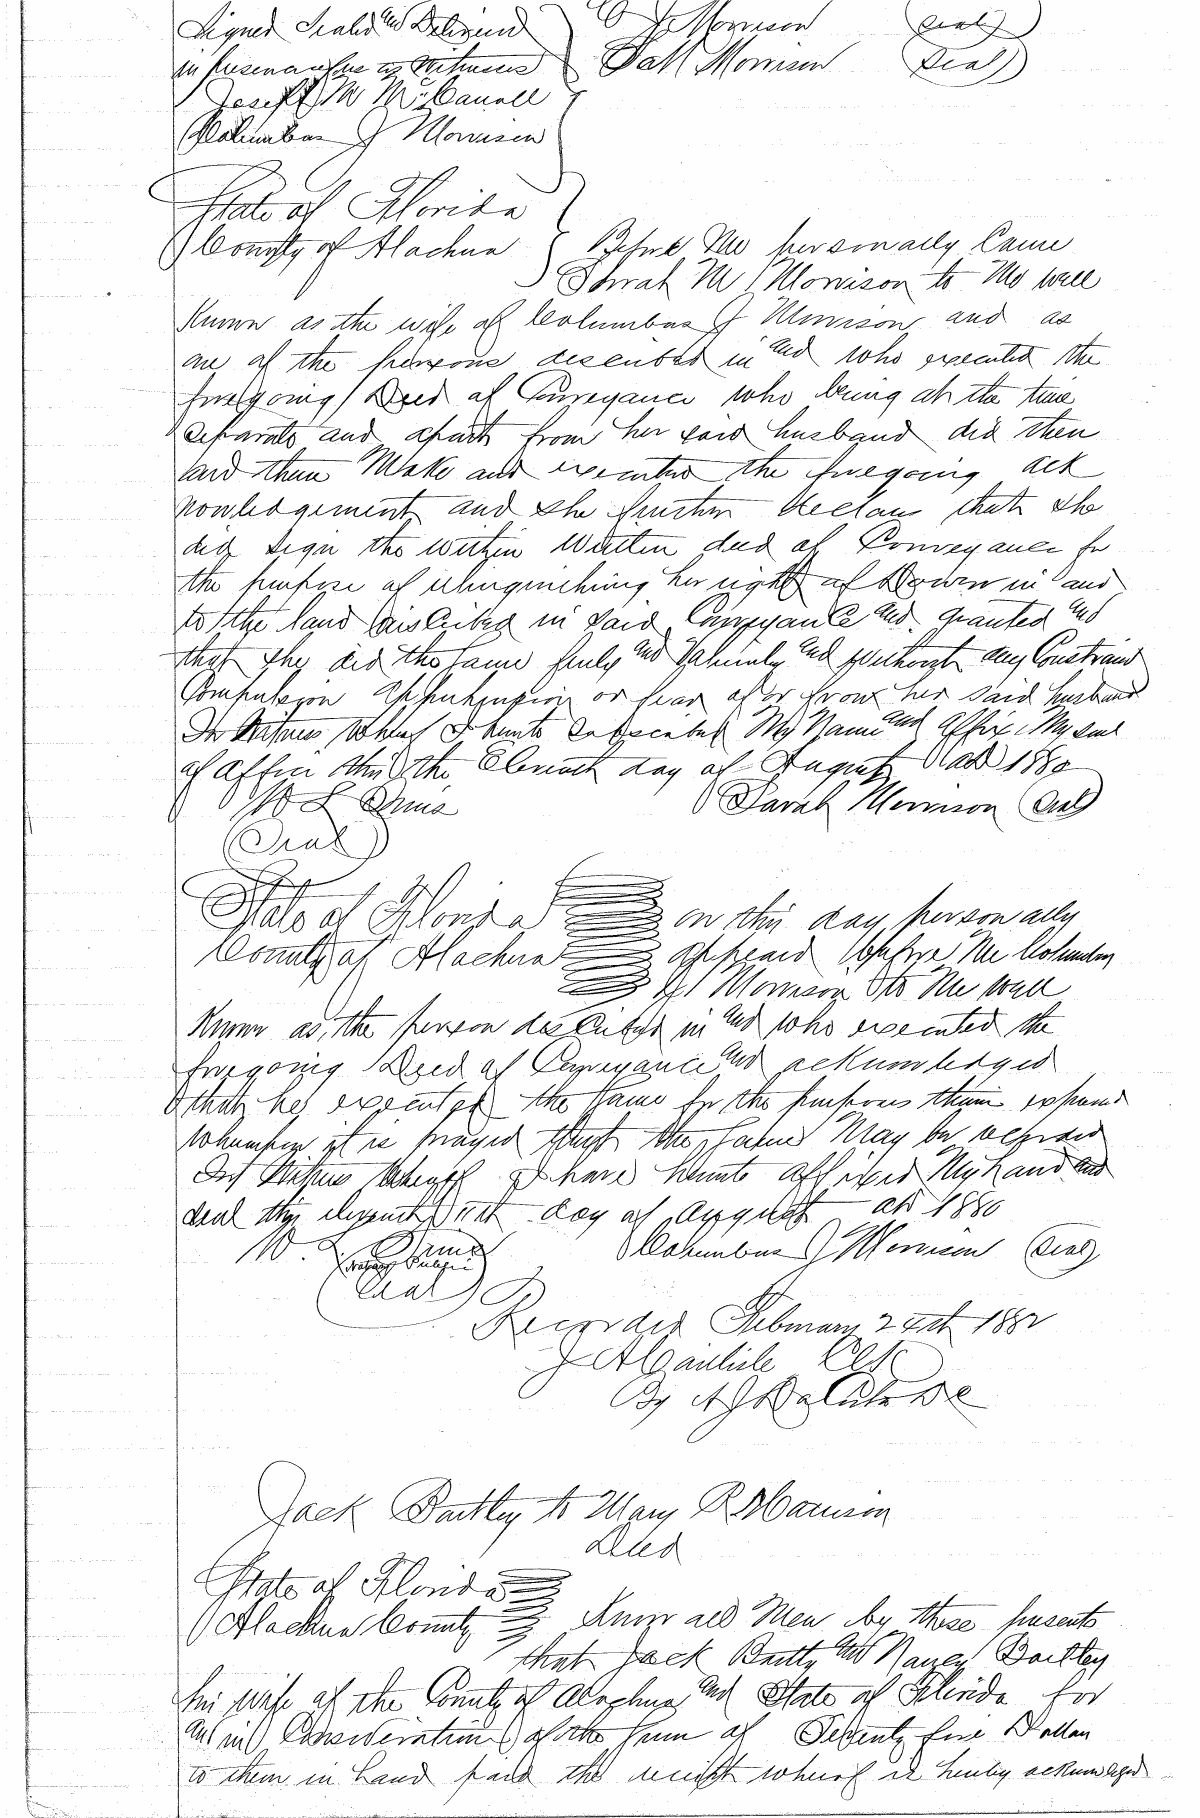 Signed Seald and Delivered C J Morrison (Seal)
in presence of us as Witnesses Sall Morrison (Seal)
Joseph M McCanoll
Columbus J Morrison
State of Florida
County of Alachua Before Me personally Came
Sarah M Morrison to Me well
Known as the wife of Columbus J Morrison and as
one of the persons described in and who executed the
foregoing Deed of Conveyance who being at the time
separate and apart from her said husband did then
and then Make and executed the foregoing ack
nowledgement and she further declare that she
did sign the within Written deed of Conveyance for
the purpose of relinquishing her right of Dower in and
to the land discribed in said Conveyance and granted and
that she did the same freely and and without any Constraint
Compulsion apprehension or fear of or from her said husband
In Witness Whereof I hereunto subscribed My Name and Affix My seal
of Office this the Eleventh day of August AD 1880
W L Sarah Morrison (Seal)
(Seal)
State of Florida on this day personally
County of Alachua appeard before Me Columbus
J Morrison to Me well
Known as the person described in and who executed the
foregoing Deed of Conveyance and acknowledged
that he executed the same for the purposes therein expressed
Whereupon it is prayed that the same May be recorded
In Witness Whereof I have hereunto affixed My hand and
seal this eleventh 11th day of August AD 1880
W L Columbus J Morrison (Seal)
(Seal)
Recorded February 24th 1882
J A Carlisle Clk
By A J DC
Jack Bartley to Mary R Harrison
Deed
State of Florida
Alachua County Know all Men by these presents
that Jack Bartley and Nancy Bartley
his wife of the County of Alachua and State of Florida for
and in Consideration of the sum of Seventy five Dollars
to them in hand paid the receipt whereof is hereby acknowledged